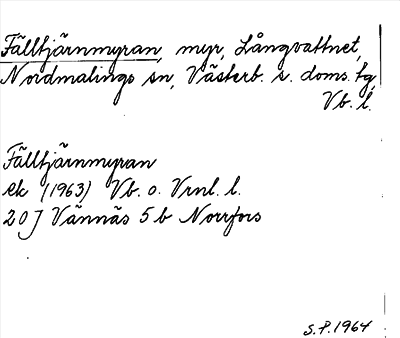 Fälltjärnmyran, myr, Långvattnet,
Nordmalings sn, Västerb. s. doms. tg,
Vb. l.
Fälltjärnmyran
ek (1963) Vb. o. Vrnl. l.
20 J Vännäs 5 b Norrfors
S.P. 1964